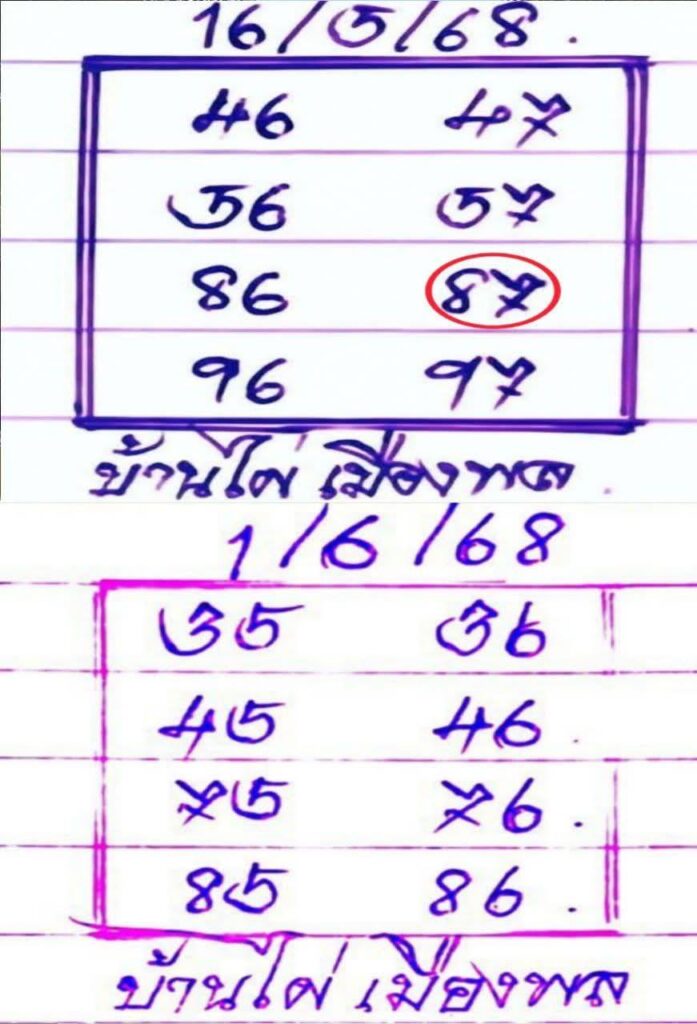 16/5/68.
46 47
56 57
86 87
96 97
บ้านไผ่ เมืองพล.
1/6/68
35 36
45 46.
75 76.
85 86.
บ้านไผ่ เมืองพล